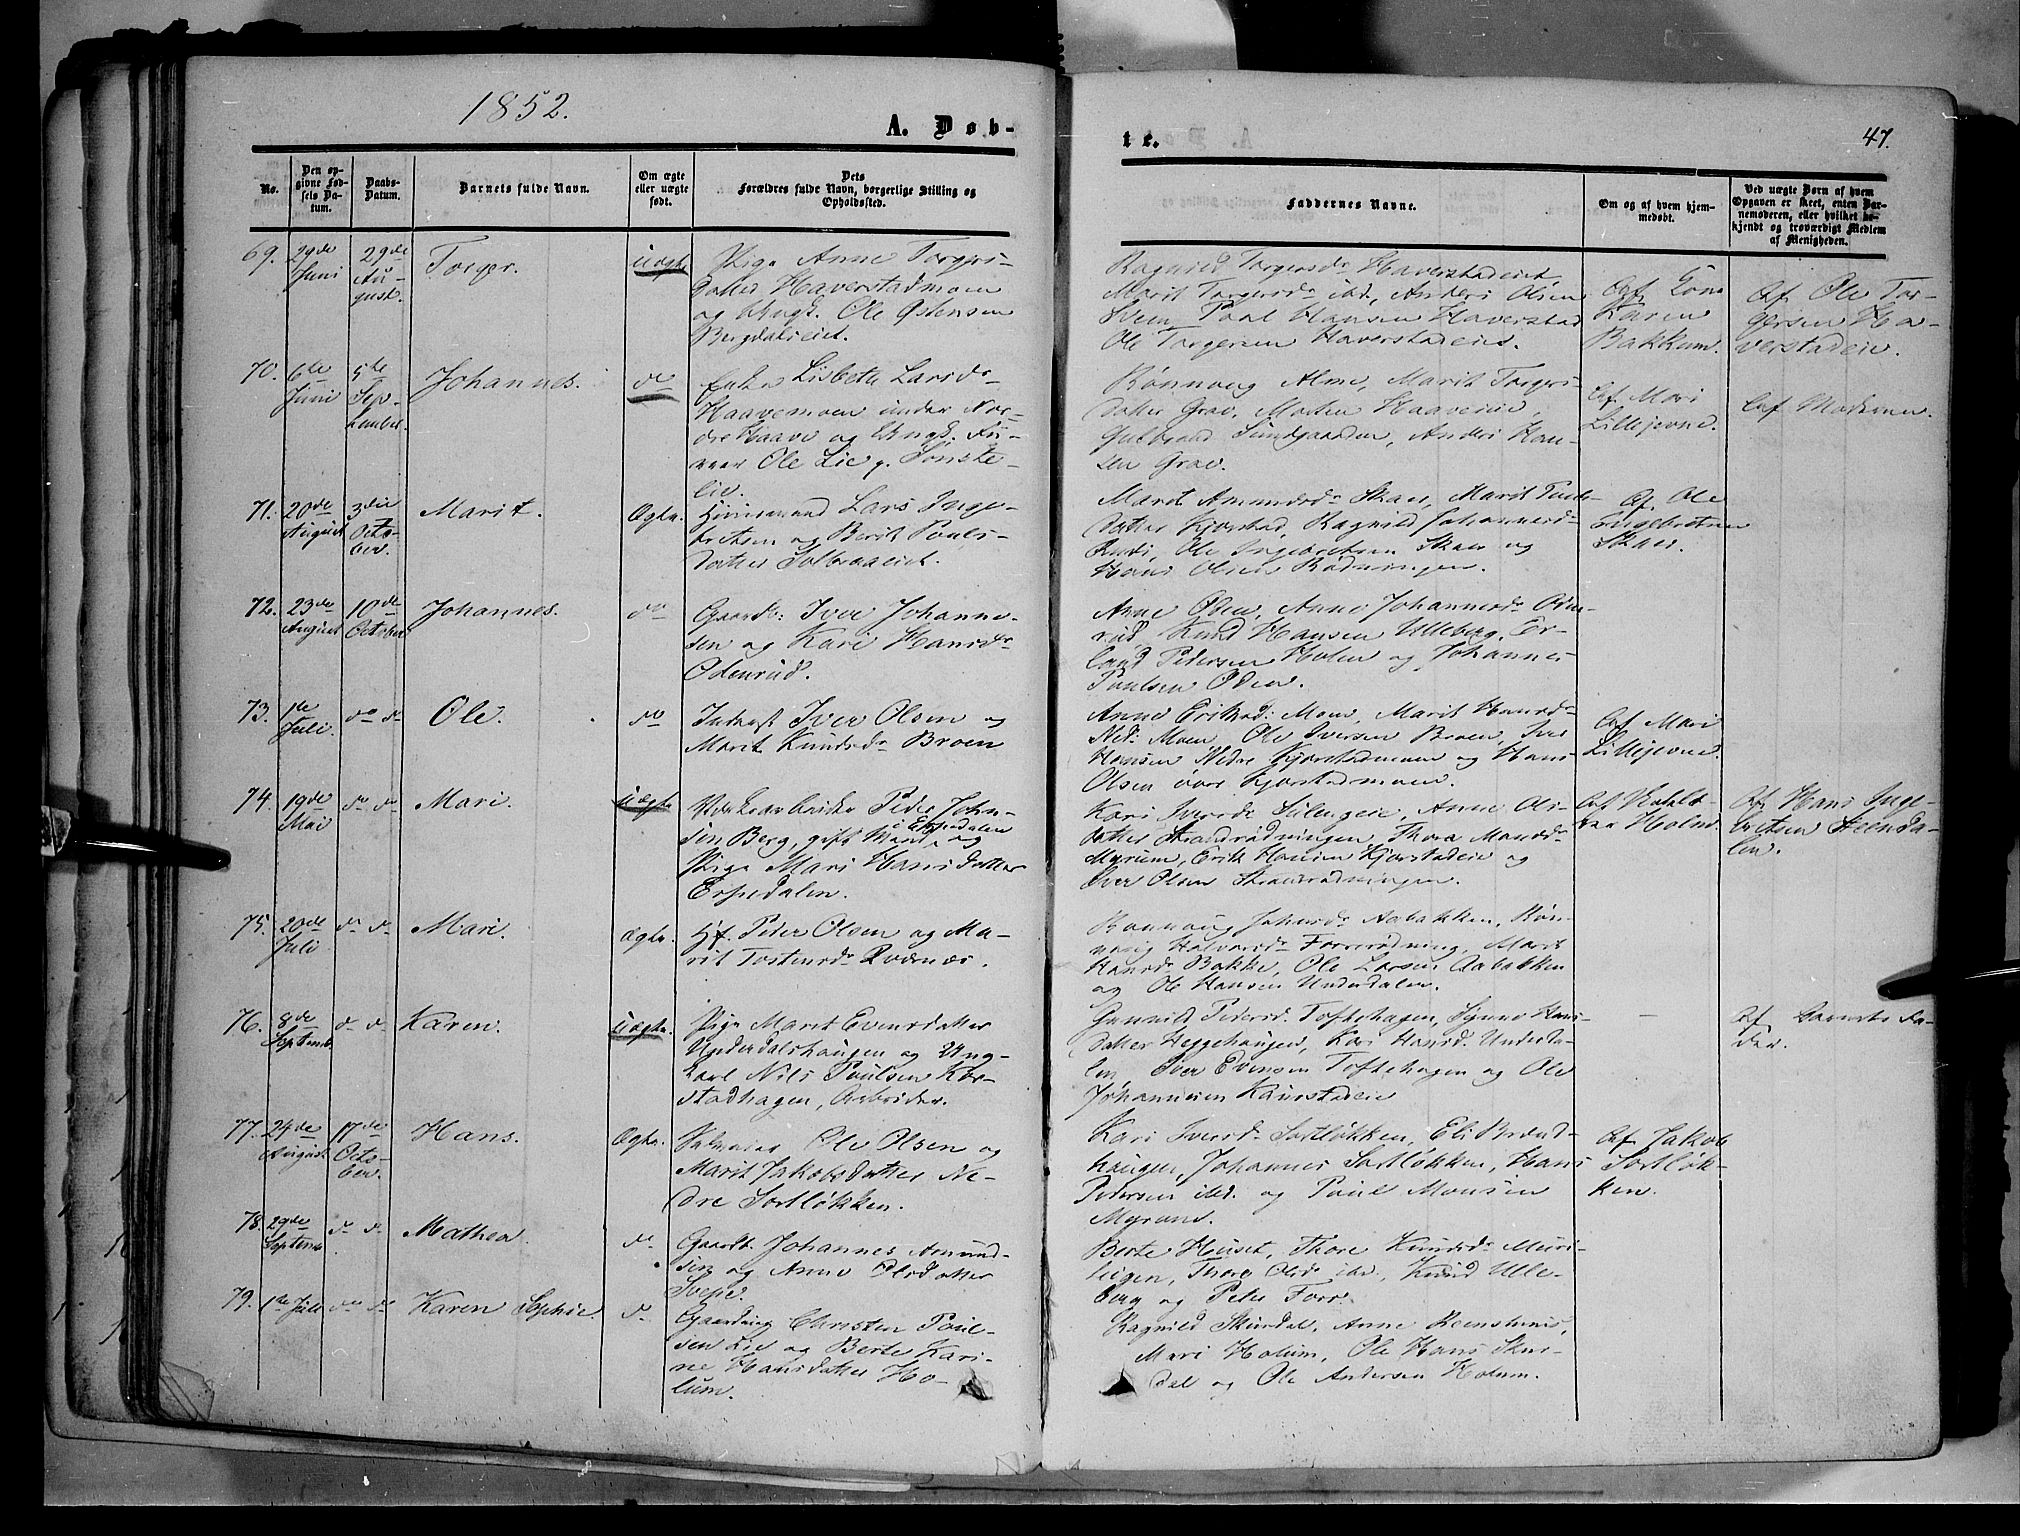 1852.
A. Døb-
te.
47.
No.
Den op-
givne Fød-
sels Da-
tum.
Daabs-
Datum.
Barnets fulde Navn.
Om ægte
eller uægte
født.
Dets
Forældres fulde Navn, borgerlige Stilling og
Opholdssted.
Faddernes Navne.
Om og af hvem hjem-
medøbt.
Ved uægte Børn af hvem
Opgaven er skeet, enten Bar-
nemoderen, eller hvilket be-
kjendt og troværdigt Medlem
af Menigheden.
69. 29de Juni
29de Au-
gust.
Torger.
Uægte
Pige Anne Torgers-
datter Haverstadmoen
og Ungk. Ole Østensen
Bergdalseiet.
Ragnild Torgersdr Haverstadeiet
Marit Torgersdr ibd., Anders Olsen
Paal Hansen Haverstad
Ole Torgersen Haverstadeiet.
Af
Karen
Bakkum.
Af Ole Tor-
gersen Ha-
verstadeie.
70. 6te Juni
5te Sep-
tember
Johannes.
do
Enke Lisbeth Larsdr
Haavemoen under Nor-
dre Haave og Ungk.
Ole Lie
lie.
Rønnoug Alme, Marit Torgers-
datter Grav, Haaveeie,
Gulbrand Sundgaarden, Anders Han-
sen Grav.
Af Mari
Lillejevne.
Af Moderen.
71. 20de August
3die Octo-
ber.
Marit.
Ægte.
Huusmand Lars Inge-
bretsen og Berit Pouls-
datter Solbraaeiet.
Marit Amundsdr Skaer, Marit
datter Kjorstad, Ragnild Johannesd.
Ole Ingebretsen Skaer og
Hans Olsen Rødningen.
Af Ole
Engebretsen
Skaer.
72. 23de August
10de October
Johannes.
do
Gaardb: Iver Johanne-
sen og Kari Hansdr
Odenrud.
Anne Oden, Anne Johannesdr Oden-
rud, Knud Hansen Ulleberg, Er-
land Pedersen Holen og Johannes
Paulsen Oden.
73. 1te Juli.
do do
Ole.
do
Inderst Iver Olsen og
Marit Knudsdr Broen
Anne Eriksd: Moen, Marit Hansdr
Ned: Moen, Ole Iversen Broen, Iver
Hansen Nedre Kjorstadmoen og Hans
Olsen øvre Kjorstadmoen.
Af Mari
Lillejevne.
74. 19de Mai
do do
Mari.
Uægte
Peder John-
sen Berg, gift Mand i Espedalen og
Pige Mari Hansdatter
Espedalen.
Kari Iversdr Sulengeie, Anne Ols-
datter Strandrødningen, Thora Monsdr
Myrum, Erik Hansen Kjorstadeie og
Iver Olsen Strandrødningen.
Af
Holm.
Af Hans Inge-
bretsen
len.
75. 20de Juli
do do
Mari.
Ægte.
Gf. Peder Olsen og Ma-
rit Tostensdr
Rønnoug Johnsdr Aabakken, Røn-
noug Halvorsdr Forrrødning, Marit
Hansdr Bakke, Ole Larsen Aabakken
og Ole Hansen Underdalen.
76. 8de Septemb.
do do
Karen.
Uægte.
Pige Marit Evensdatter
Underdalshaugen og Ung-
karl Nils Poulsen Kor-
stadhagen, Arbeider.
Gunnild Pedersd. Toftehagen, Synne Hans-
datter Heggehaugen, Kari Hansd. Underda-
len, Iver Evensen Toftehagen og Ole
Johannesen Kaurstadeie
Af Barnets Fa-
der.
77. 24de August
17de Octo-
ber.
Hans.
Ægte.
Ole Olsen og
Marit Jakobsdatter Ne-
dre Sortløkken.
Kari Iversdr Sortløkken, Eli
haugen, Johannes Sortløkken, Hans
Pedersen ibd. og Poul Monsen
Myrum.
Af Jakob
Sortløk-
ken.
78. 29de Septemb
do do
Mathea.
do
Gaardb. Johannes Amund-
sen og Anne Olsdatter
Sveje.
Berte Huset, Thore Knudsdr
Thore Olsdr ibd, Knud Ulle-
berg og Peder Forr.
79. 1te Juli
do do
Karen Sophie.
do
Christen Poul-
sen Lie og Berte Kari-
ne Hansdatter Ho-
lum.
Ragnild Skurdal, Anne
Mari Holum, Ole Hans Skur-
dal og Ole Andersen Holum.